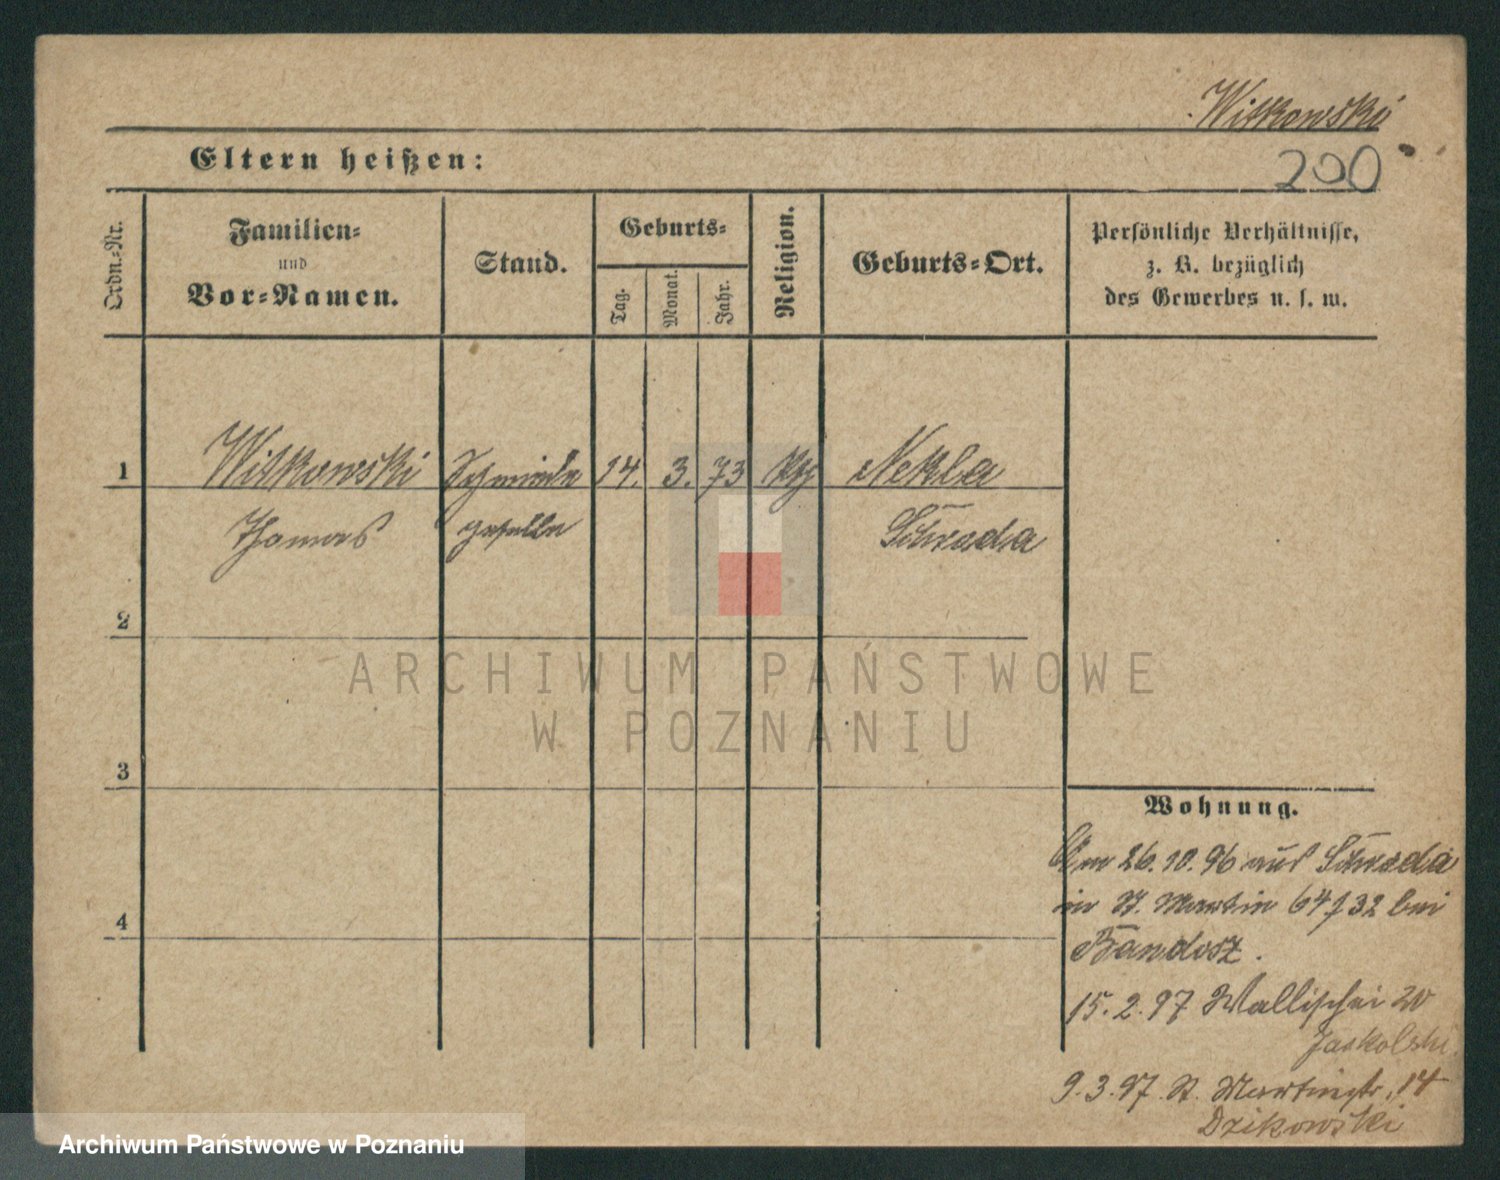 Witkowski
Eltern heißen:
200
Ordn.-Nr.
Familien-
und
Vor-Namen.
Stand.
Geburts-
Tag.
Monat.
Jahr.
Religion.
Geburts-Ort.
Persönliche Verhältnisse,
z. B. bezüglich
des Gewerbes u. s. w.
1 Witkowski Schmiede 14. 3. 73 Nekla
Thomas geselle Schroda
2
3
4
ARCHIWUM PAŃSTWOWE
W POZNANIU
Wohnung.
26.10.96 aus Schroda
in St. Martin 64/32 bei
Bandosz.
15.2.97 Wallischei 20
Jaskolski
9.3.97 St. Martinstr. 14
Dzikowski
Archiwum Państwowe w Poznaniu